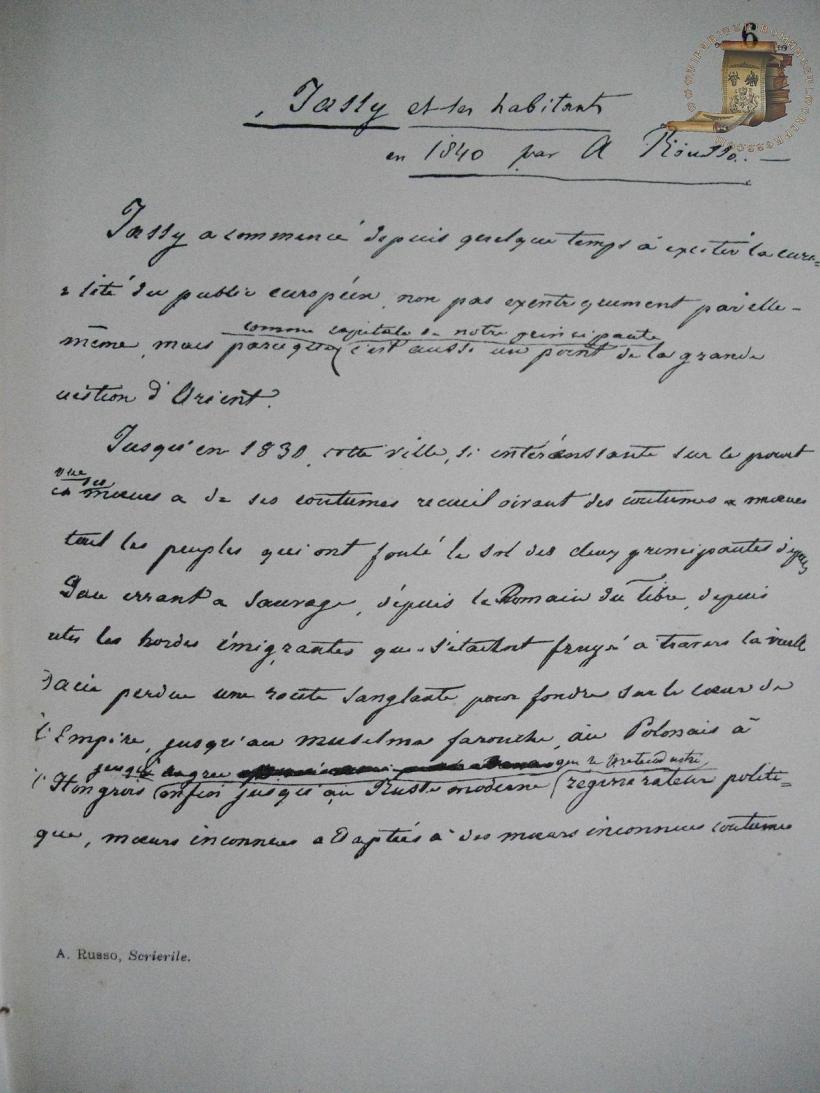 6
Jassy et ses habitants
en 1840 par A Roússo. —
Jassy a commencé depuis quelque temps à exciter la curi=
sité du public européen, non pas exentriquement par elle-
comme capitale de notre principauté
même, mais parceque c'est aussi un point de la grande
uestion d'Orient.
Jusqu'en 1830, cette ville, si intéréssante sur le point
vue ses
mœurs a de ses coutumes recueil vivant des coutumes a mœurs
tout les peuples qui ont foulé le sol des deux principautes depuis
Dace errant a Sauvage, dépuis le Romain du Tibre, depuis
utes les hordes émigrantes qui s'étaient frayé a travers la vieille
Dacie perdue une route sanglante pour fondre sur le cœur de
l'Empire, jusqu'au muselman farouche, au Polonais à
jusqu'à qui se pretend notre
l'Hongrois enfin jusqu'au Russe moderne (regenerateur politi=
que, mœurs inconnues adaptées à des mœurs inconnues coutumes
A. Russo, Scrierile.